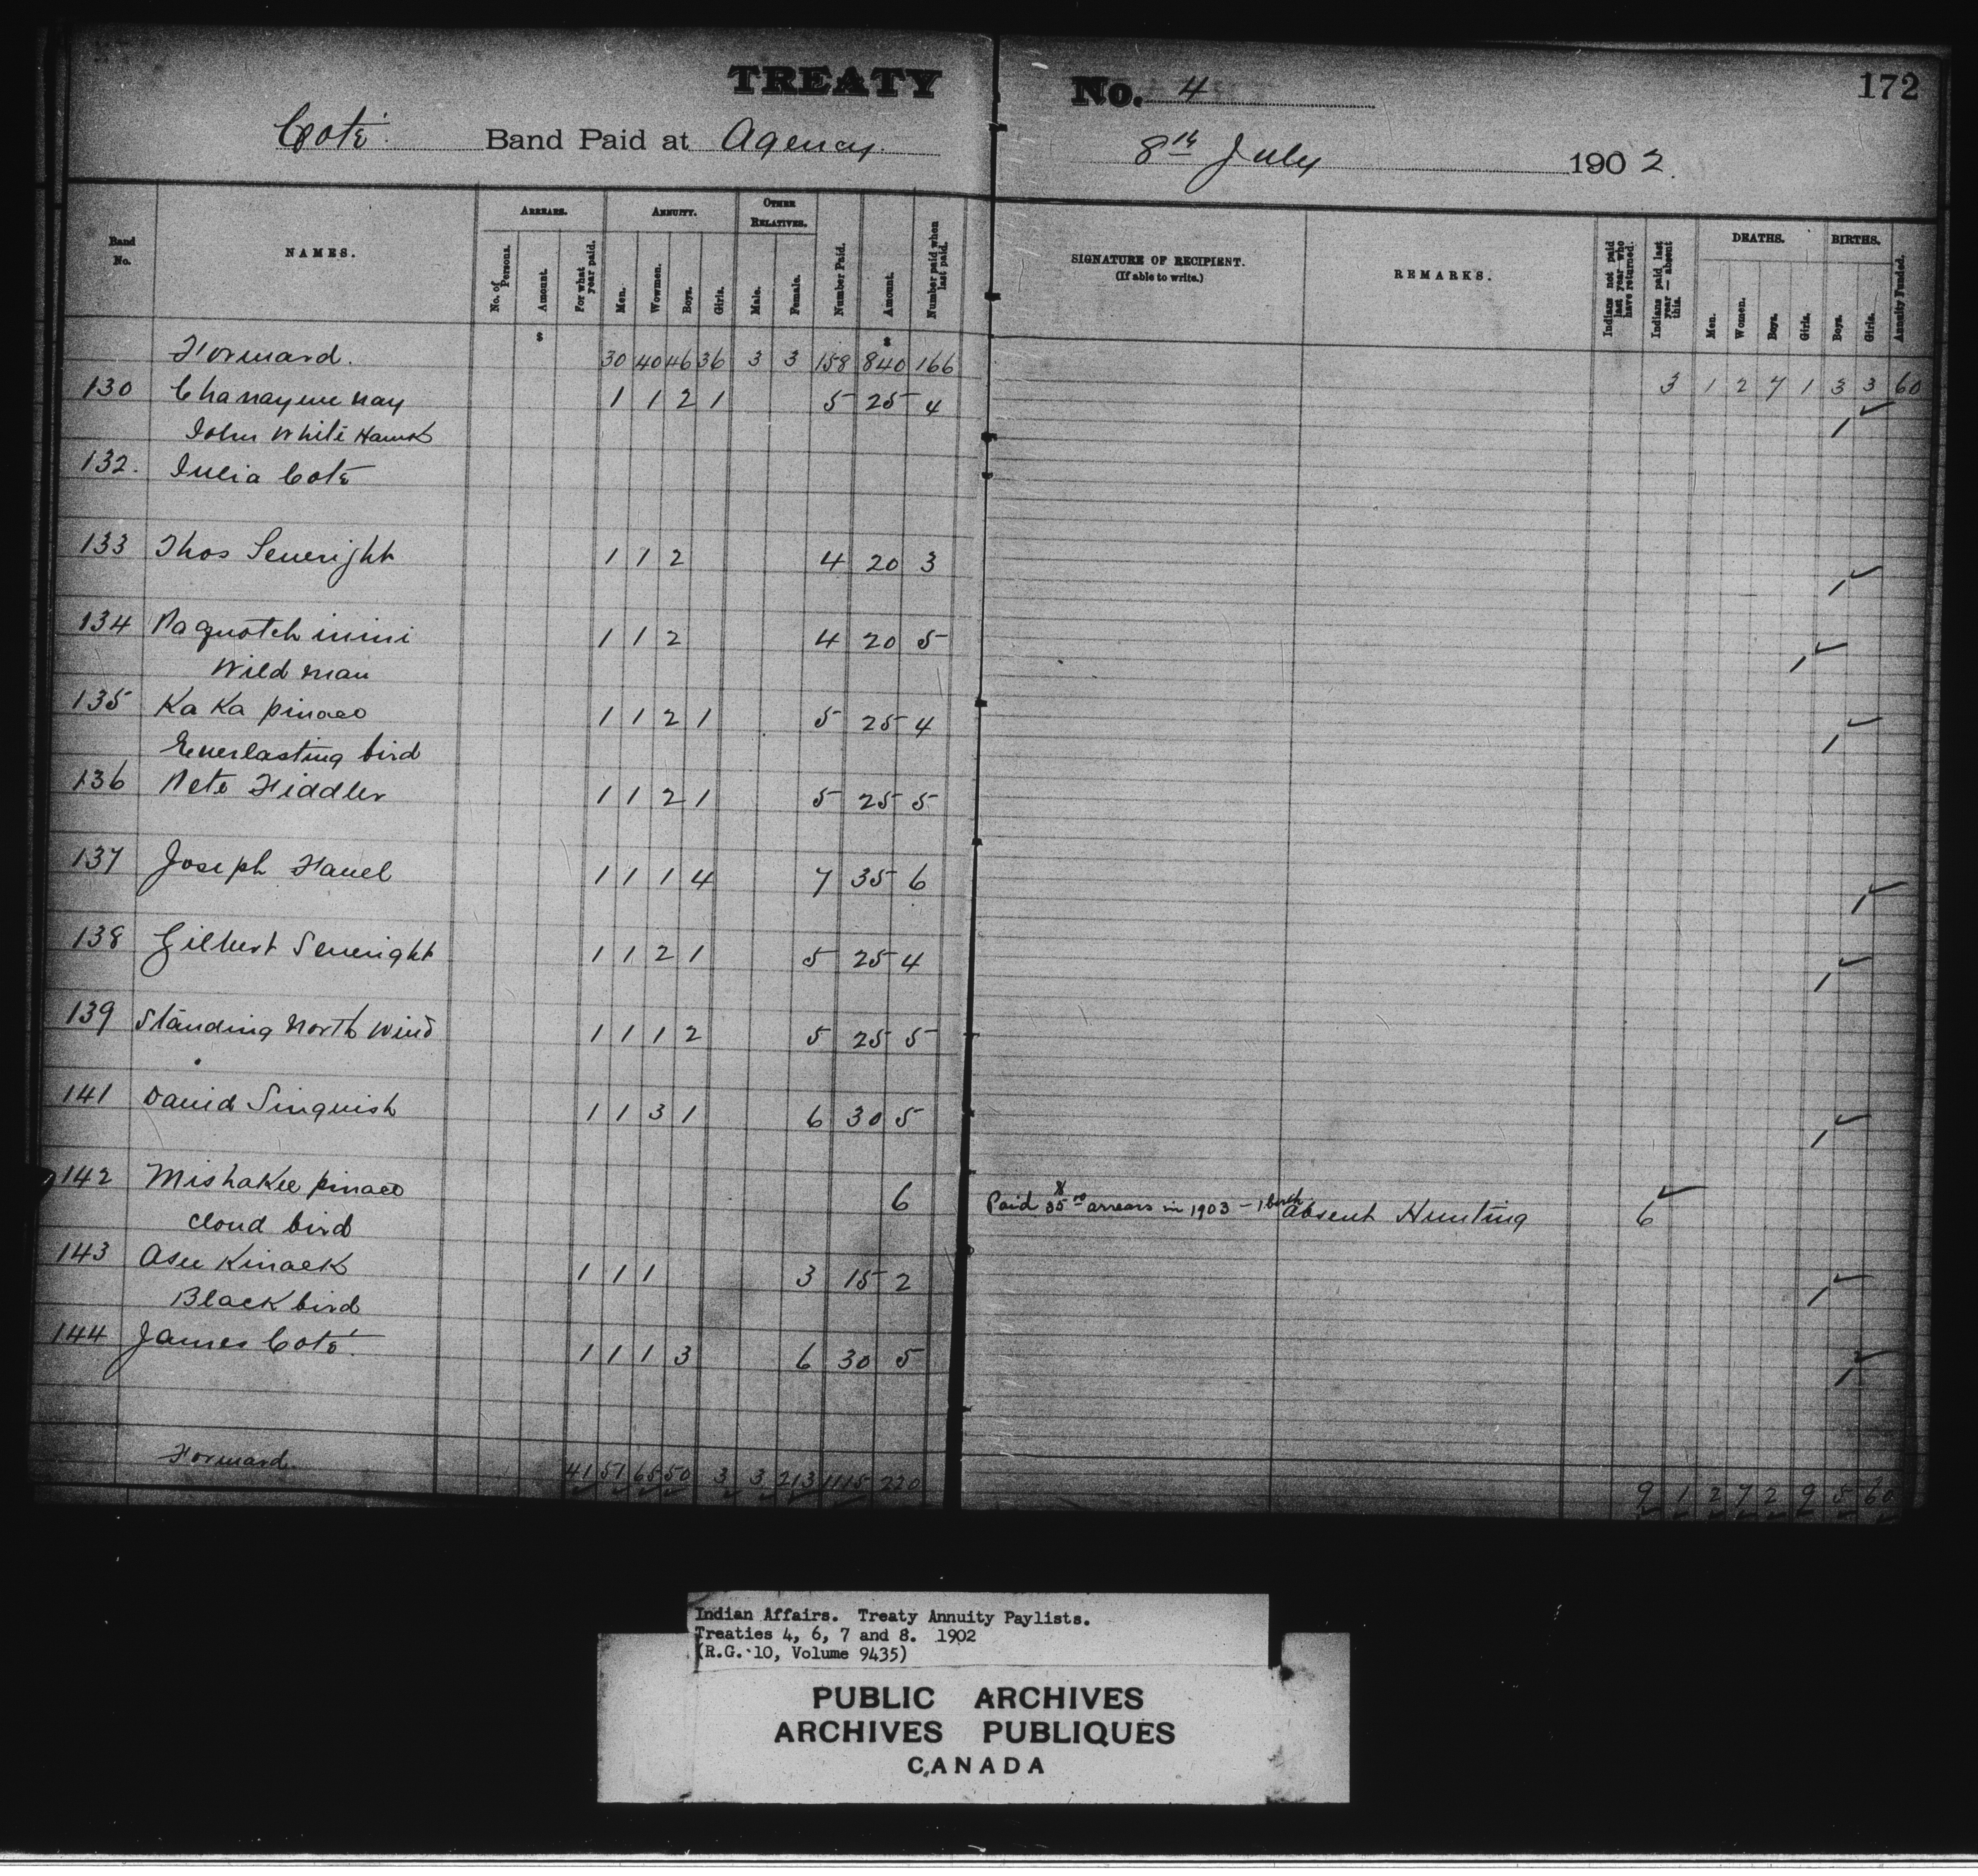 TREATY No. 4 172
Coté Band Paid at Agency. 8th July 1902.
Band No. NAMES. ARREARS. No. of Persons. Amount. For what year paid. ANNUITY. Men. Wowmen. Boys. Girls. OTHER RELATIVES. Male. Female. Number Paid. Amount. Number paid when last paid. SIGNATURE OF RECIPIENT. (If able to write.) REMARKS. Indians not paid last year who have returned. Indians paid last year — absent this. DEATHS. Men. Women. Boys. Girls. BIRTHS. Boys. Girls. Annuity Funded.
$ $
Forward. 30 40 46 36 3 3 158 840 166 3 1 2 7 1 3 3 60
130 Chanayew nay 1 1 2 1 5 25 4 1 ✓
John White Hawk
132. Julia Coté
133 Thos Severight 1 1 2 4 20 3 1 ✓
134 Paquotch inini 1 1 2 4 20 5 1 ✓
Wild man
135 Ka Ka pinaeo 1 1 2 1 5 25 4 1 ✓
Everlasting bird
136 Pete Fiddler 1 1 2 1 5 25 5
137 Joseph Favel 1 1 1 4 7 35 6 1 ✓
138 Gilbert Severight 1 1 2 1 5 25 4 1 ✓
139 Standing North Wind 1 1 1 2 5 25 5
141 David Sinquish 1 1 3 1 6 30 5 1 ✓
142 Mishakee pinaeo 6 Paid $35 00 arrears in 1903 - 1 birth. Absent Hunting 6 ✓
Cloud bird
143 Asee Kinaek 1 1 1 3 15 2 1 ✓
Black bird
144 James Coté. 1 1 1 3 6 30 5 1 ✓
Forward. 41 51 65 50 3 3 213 1115 220 9 1 2 7 2 9 5 60
Indian Affairs. Treaty Annuity Paylists.
Treaties 4, 6, 7 and 8. 1902
(R.G. 10, Volume 9435)
PUBLIC ARCHIVES
ARCHIVES PUBLIQUES
CANADA